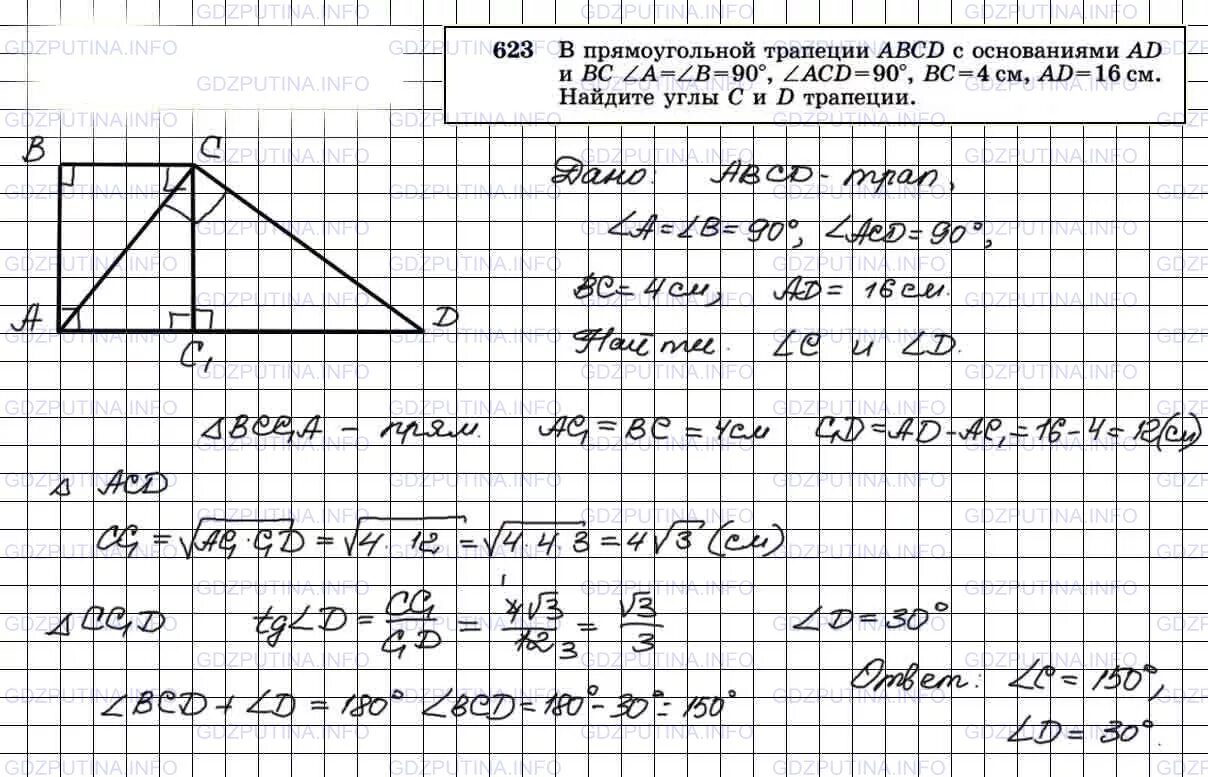 623 В прямоугольной трапеции ABCD с основаниями AD
и BC ∠A=∠B=90°, ∠ACD=90°, BC=4 см, AD=16 см.
Найдите углы C и D трапеции.
B C
A C₁ D
Дано: ABCD - трап,
∠A=∠B=90°, ∠ACD=90°,
BC=4см, AD=16см.
Найти. ∠C и ∠D.
△BCC₁A - прям. AC₁=BC=4см C₁D=AD-AC₁=16-4=12(см)
△ ACD
CC₁=√AC₁·C₁D=√4·12=√4·4·3=4√3(см)
△CC₁D tg∠D=CC₁/C₁D=4√3/12=√3/3 ∠D=30°
∠BCD+∠D=180° ∠BCD=180°-30°=150°
Ответ: ∠C=150°,
∠D=30°.
GDZPUTINA.INFO